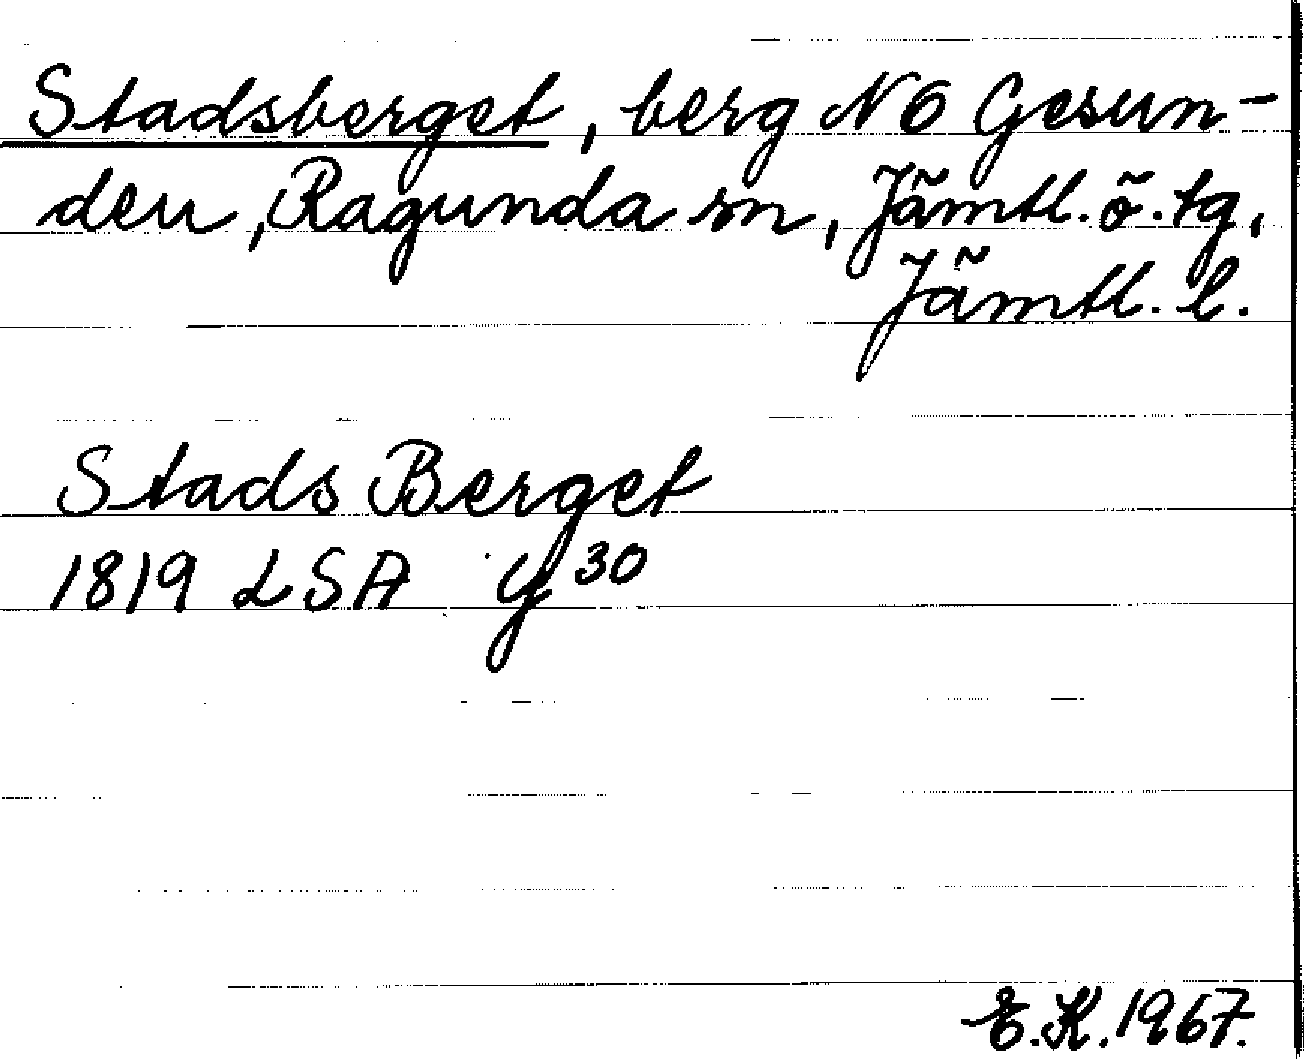 Stadsberget, berg NÖ Gesun-
den, Ragunda sn, Jämtl. ö. tg,
Jämtl. l.
Stads Berget
1819 LSA Y 30
E.K. 1967.